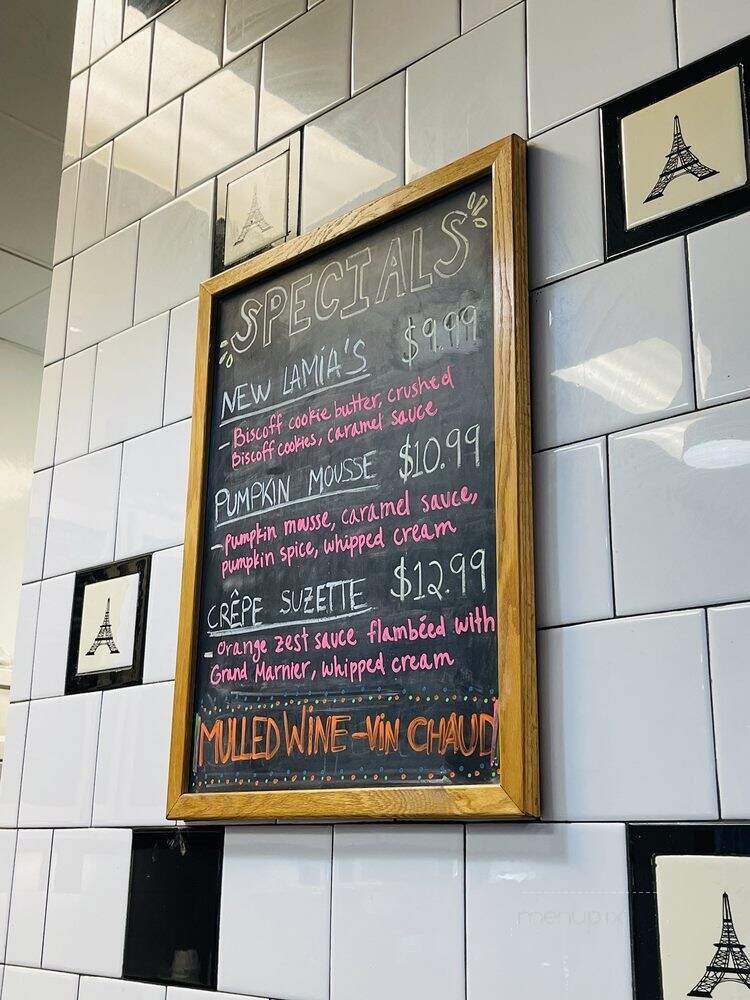 SPECIALS
NEW LAMIA'S $9.99
- Biscoff cookie butter, crushed
Biscoff cookies, caramel sauce
PUMPKIN MOUSSE $10.99
- Pumpkin mousse, caramel sauce,
pumpkin spice, whipped cream
CRÊPE SUZETTE $12.99
- Orange zest sauce flambéed with
Grand Marnier, whipped cream
MULLED WINE - VIN CHAUD
menupix